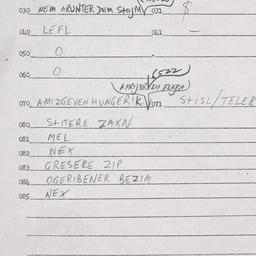 030 NEM ARUNTER DEM StoJM 031 $
040 LEFL 041 —
050 O
060 O (522)
070 AMIZGEVEN HUNGERIK 071 StISL/TELER
080 StITERE ZAKN
081 MEL
082 WEX
083 GRESERE ZIP
084 OGERIBENER BEZIM
085 NEX